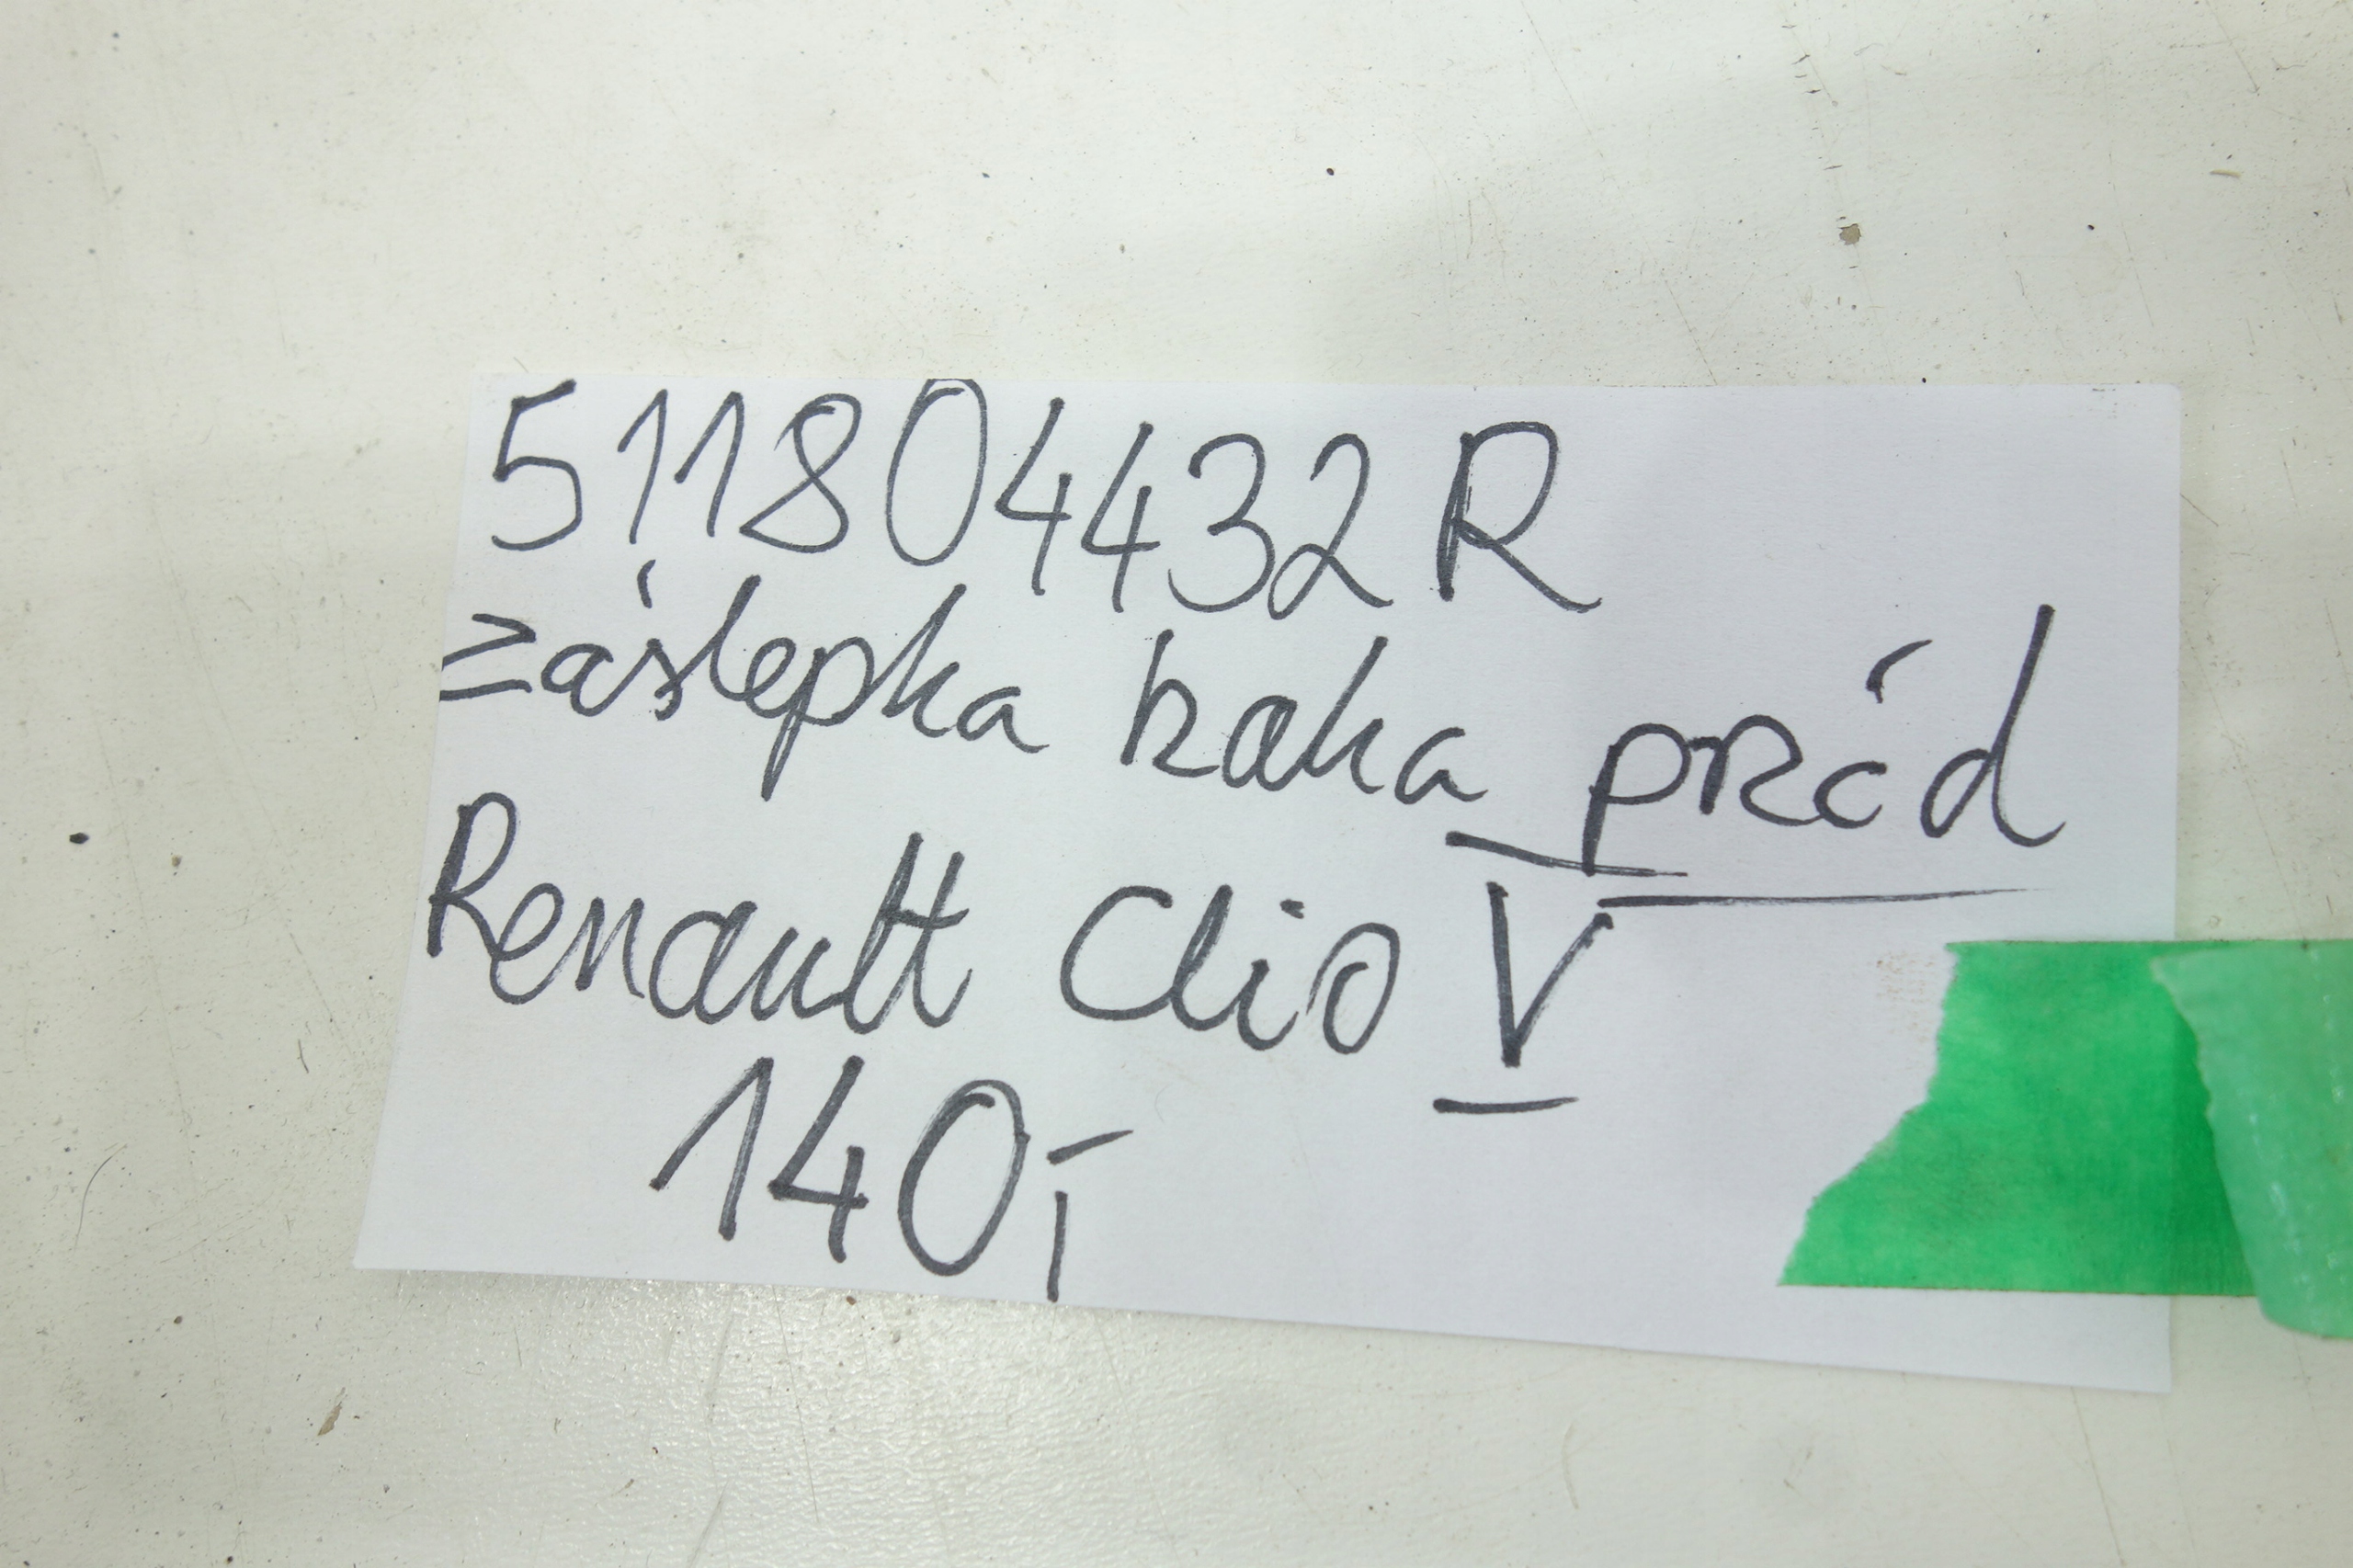 511804432R
zaślepka haka przód
Renault Clio V
140,-